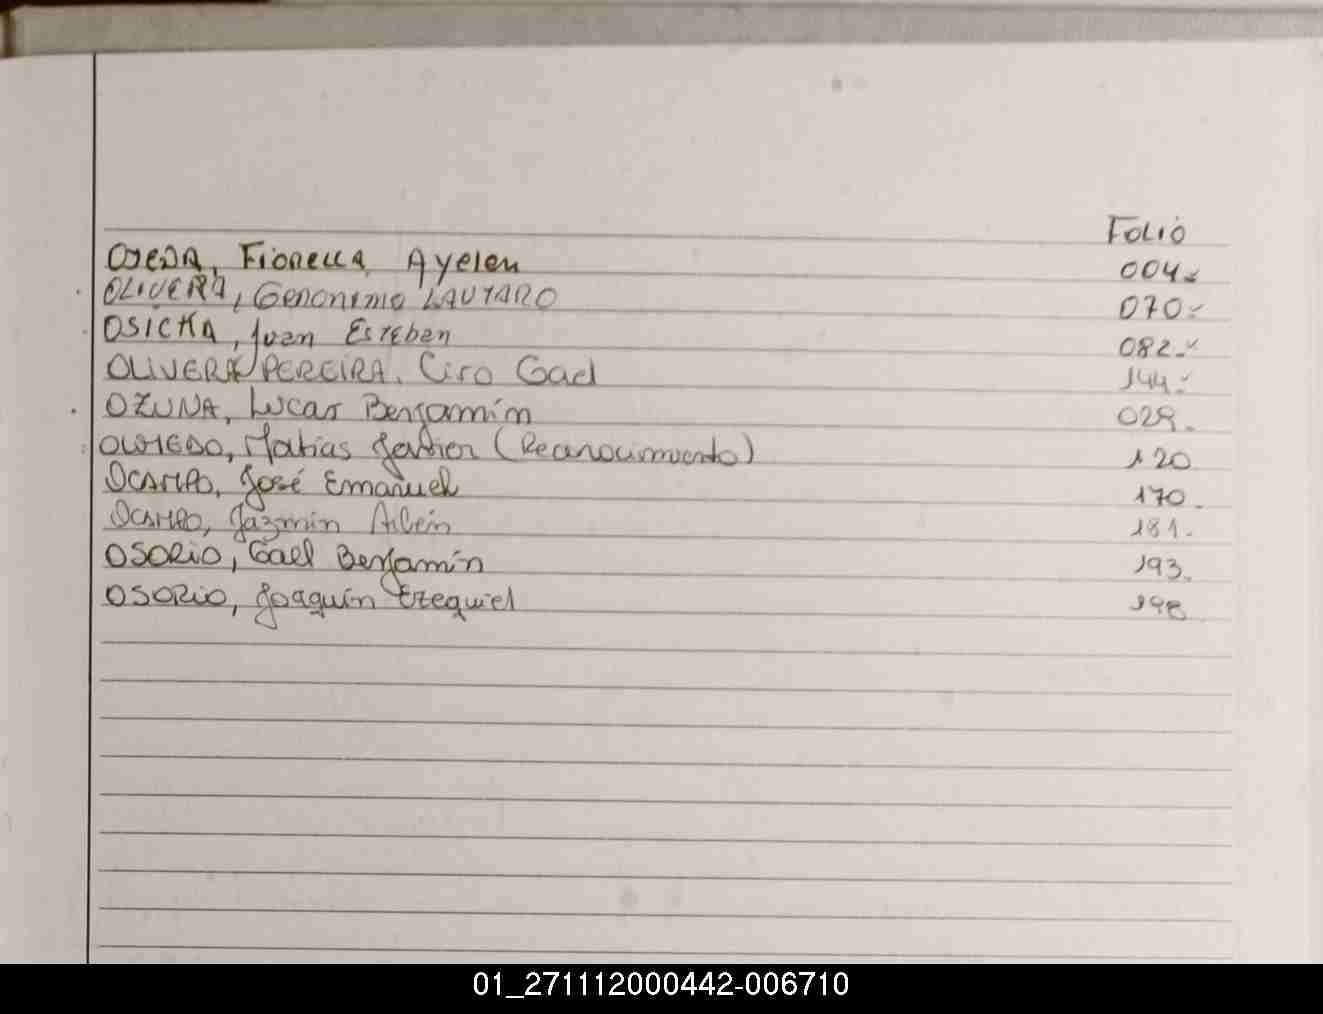 Folio
OJEDA, Fiorella Ayelen 004.
OLIVERA, Geronimo LAUTARO 070.
OSICKA, Juan Esteban 082.
OLIVERA PEREIRA, Ciro Gael 144.
OZUNA, Lucas Benjamín 029.
OLMEDO, Matias Javier (Reconocimiento) 120
OCAMPO, José Emanuel 170.
OCAMPO, Jazmin Ailein 181.
OSORIO, Gael Benjamín 193.
OSORIO, Joaquín Ezequiel 198
01_271112000442-006710